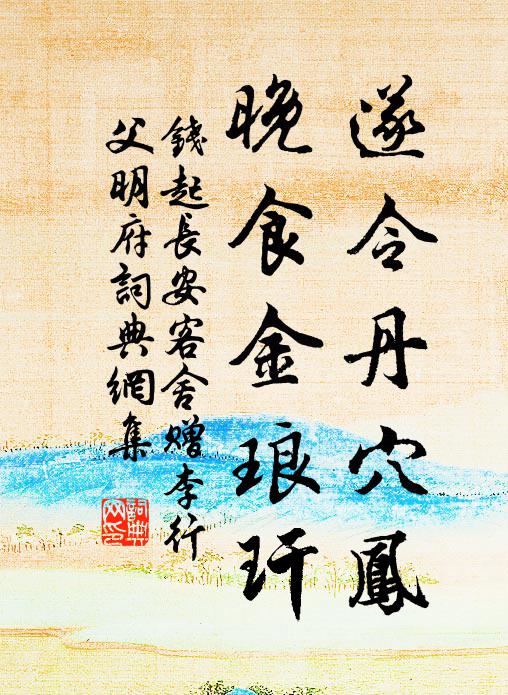 遂令丹穴鳳
晚食金琅玕
錢起長安客舍贈李行
父明府詞典網集
詞典網印